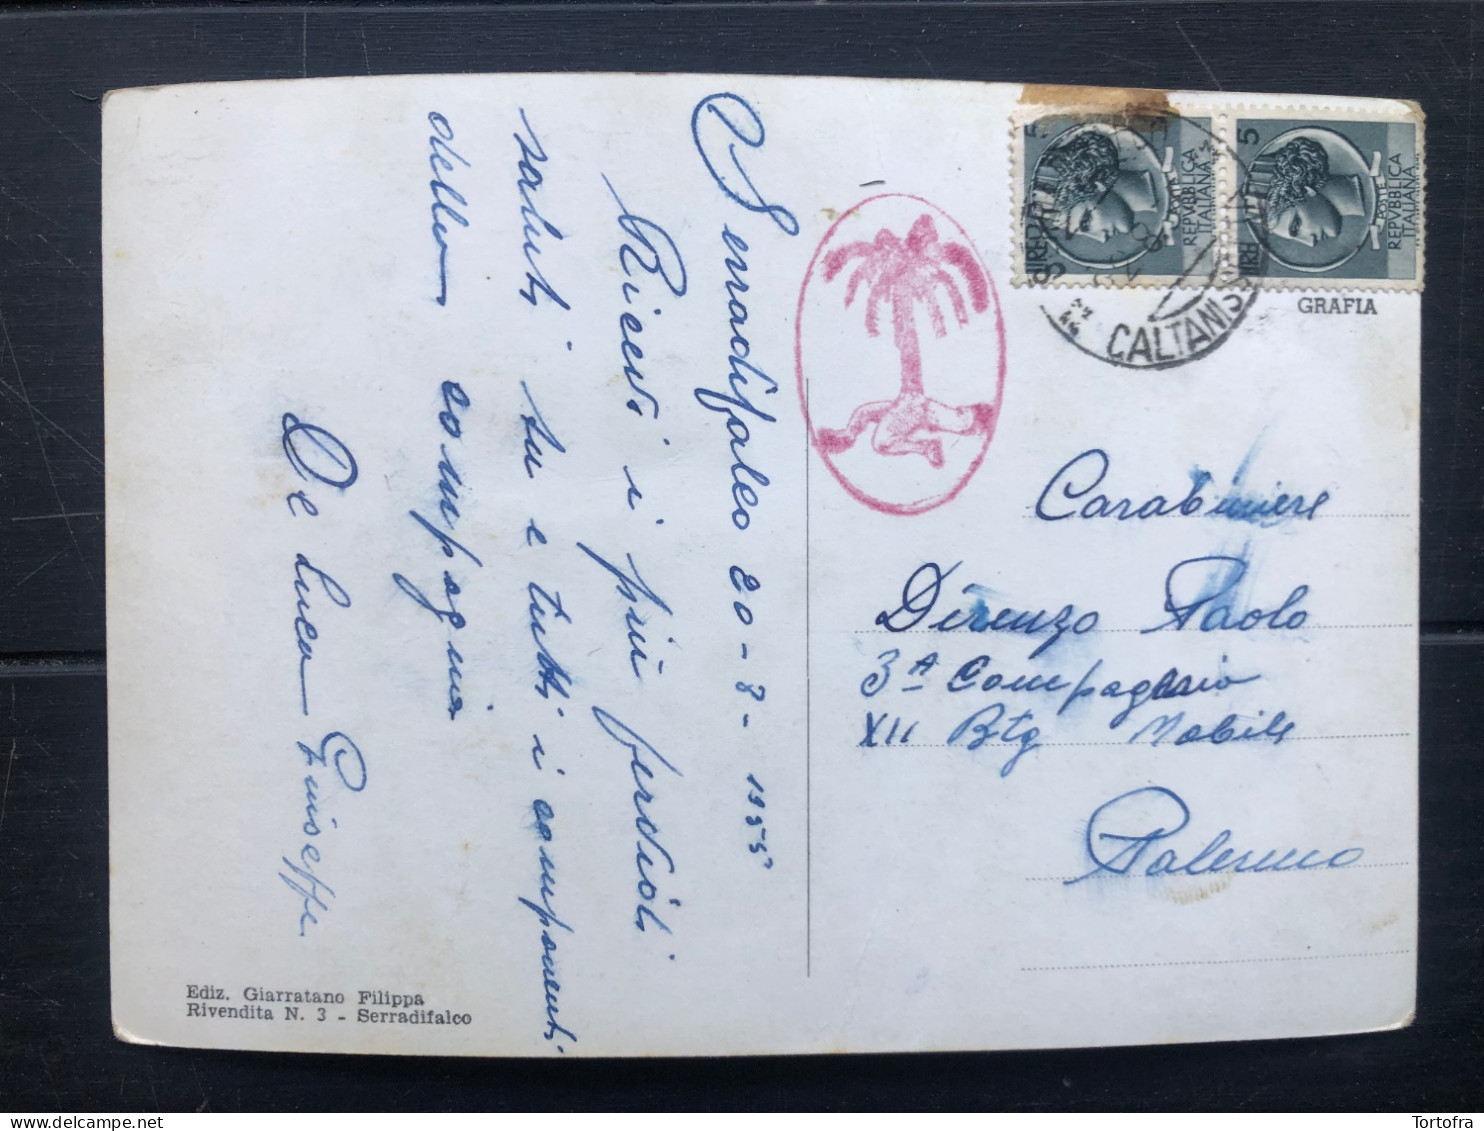 Serradifalco 20-8-1955
Ricevi i più fervidi
saluti su e tutti i componenti
della compagnia
De Luca Giuseppe
Ediz. Giarratano Filippa
Rivendita N. 3 - Serradifalco
5
LIRE
POSTE
REPVBBLICA
ITALIANA
5
LIRE
POSTE
REPVBBLICA
ITALIANA
CALTANIS
GRAFIA
Carabiniere
Direnzo Paolo
3ª Compagnia
XII Btg Mobile
Palermo
Tortofra